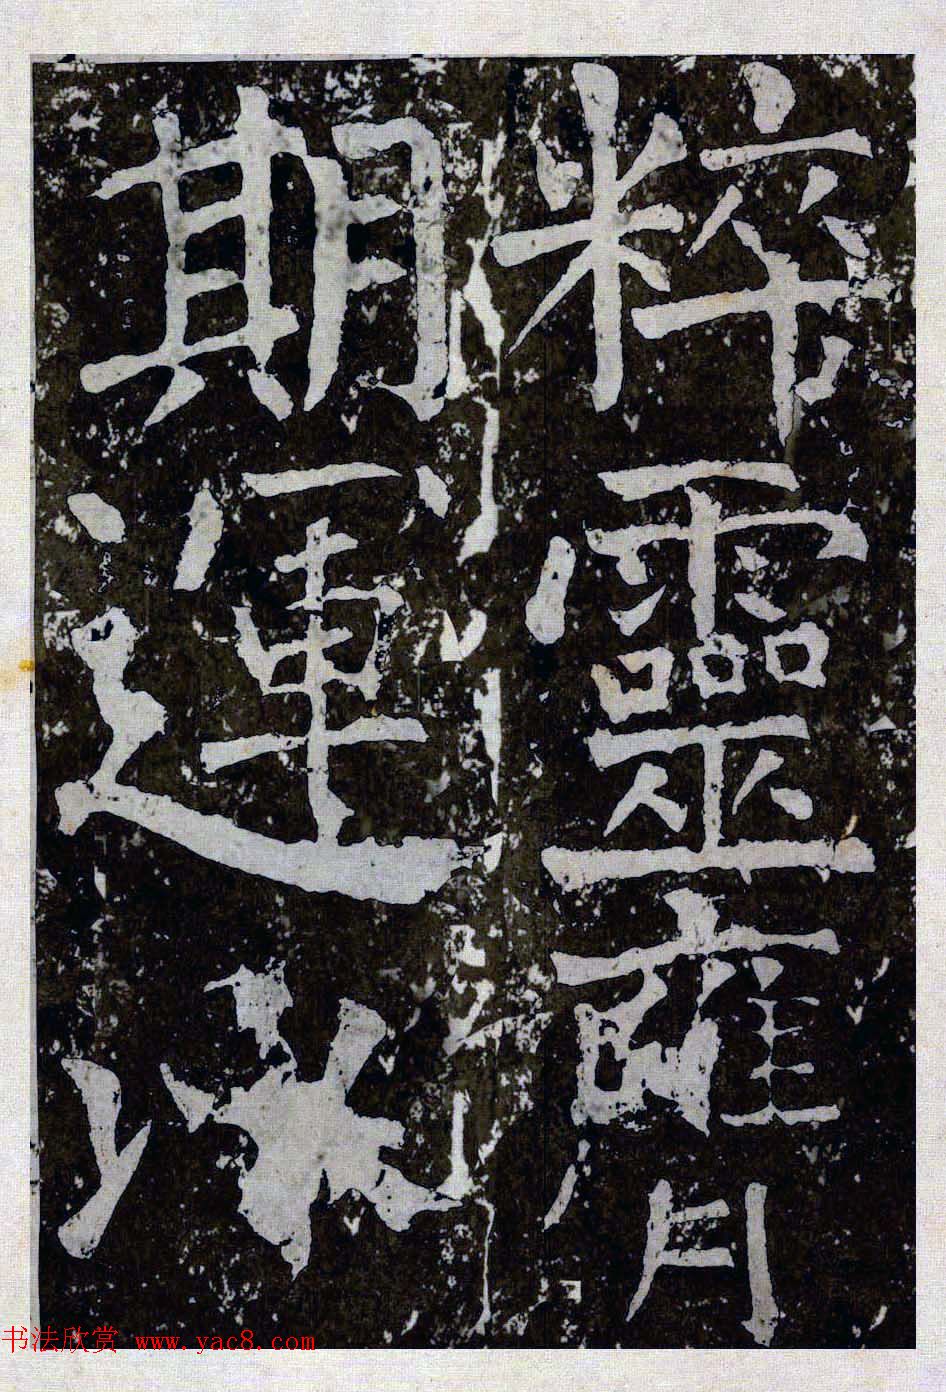 粹靈膺
期運
书法欣赏 www.yac8.com